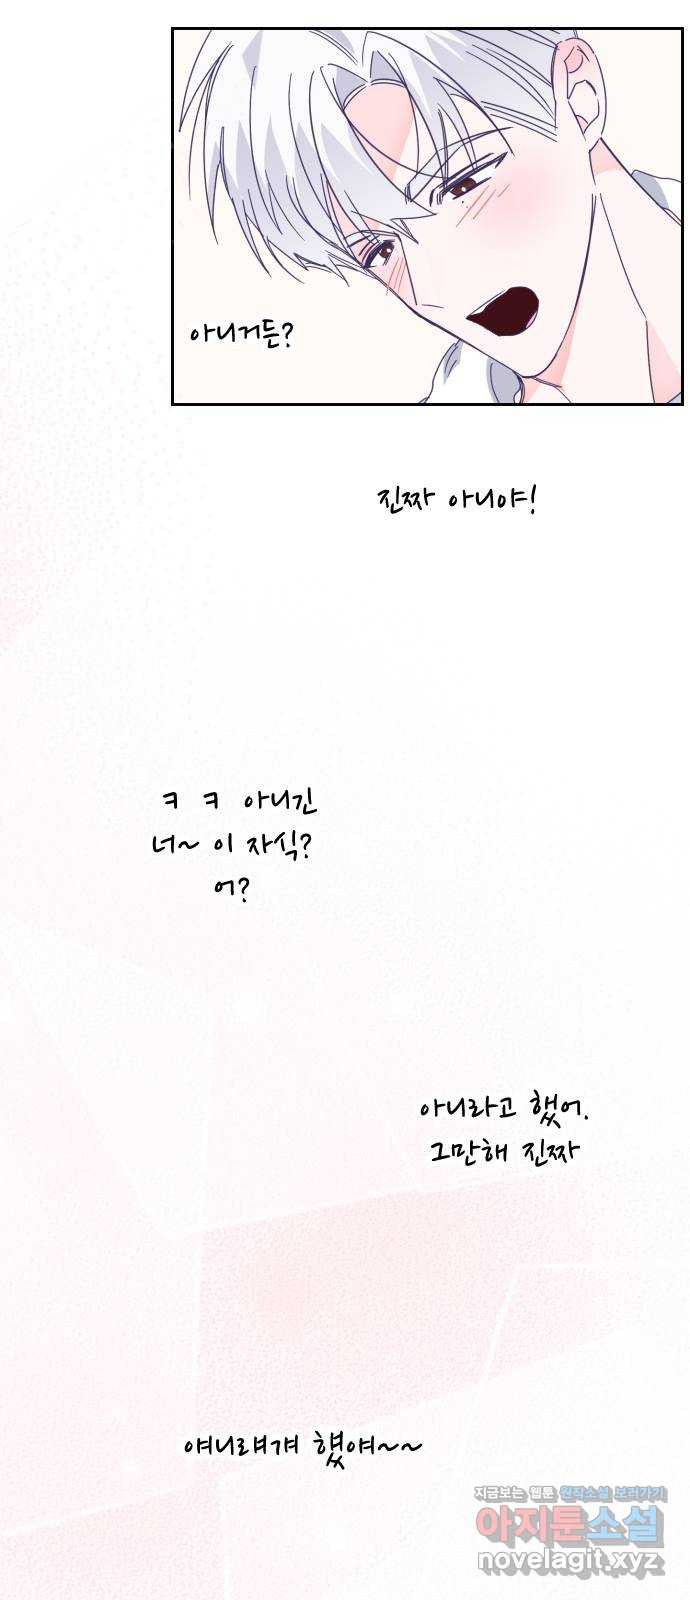 아니거든?
진짜 아니야!
ㅋ ㅋ 아니긴
너~ 이 자식?
어?
아니라고 했어.
그만해 진짜
얘니럐걔 헀얘~~
지금보는 웹툰 원작소설 보러가기
아지툰소설
novelagit.xyz